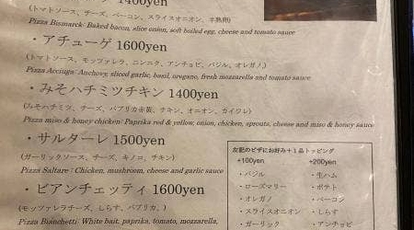 1400yen
(トマトソース、チーズ、ベーコン、スライスオニオン、半熟卵)
Pizza Bismarck: Baked bacon, slice onion, soft boiled egg, cheese and tomato sauce
・アチューゲ 1600yen
(トマトソース、モッツァレラ、ニンニク、アンチョビ、バジル、オレガノ)
Pizza Acciuga: Anchovy, sliced garlic, basil, oregano, fresh mozzarella and tomato sauce
・みそハチミツチキン 1400yen
(みそハチミツ、チーズ、パプリカ赤黄、チキン、オニオン、カイワレ)
Pizza miso & honey chicken: Paprika red & yellow, onion, chicken, sprouts, cheese and miso & honey sauce
・サルターレ 1500yen
(ガーリックソース、チーズ、キノコ、チキン)
Pizza Saltare: Chicken, mushroom, cheese and garlic sauce
・ビアンチェッティ 1600yen
(モッツァレラチーズ、しらす、パプリカ、)
Pizza Bianchetti: White bait, paprika, tomato, mozzarella,
左記のピザにお好み+1品トッピング
+100yen +200yen
・バジル ・生ハム
・ローズマリー ・ポテト
・オレガノ ・ベーコン
・スライスオニオン ・しらす
・ガーリック ・アンチョビ